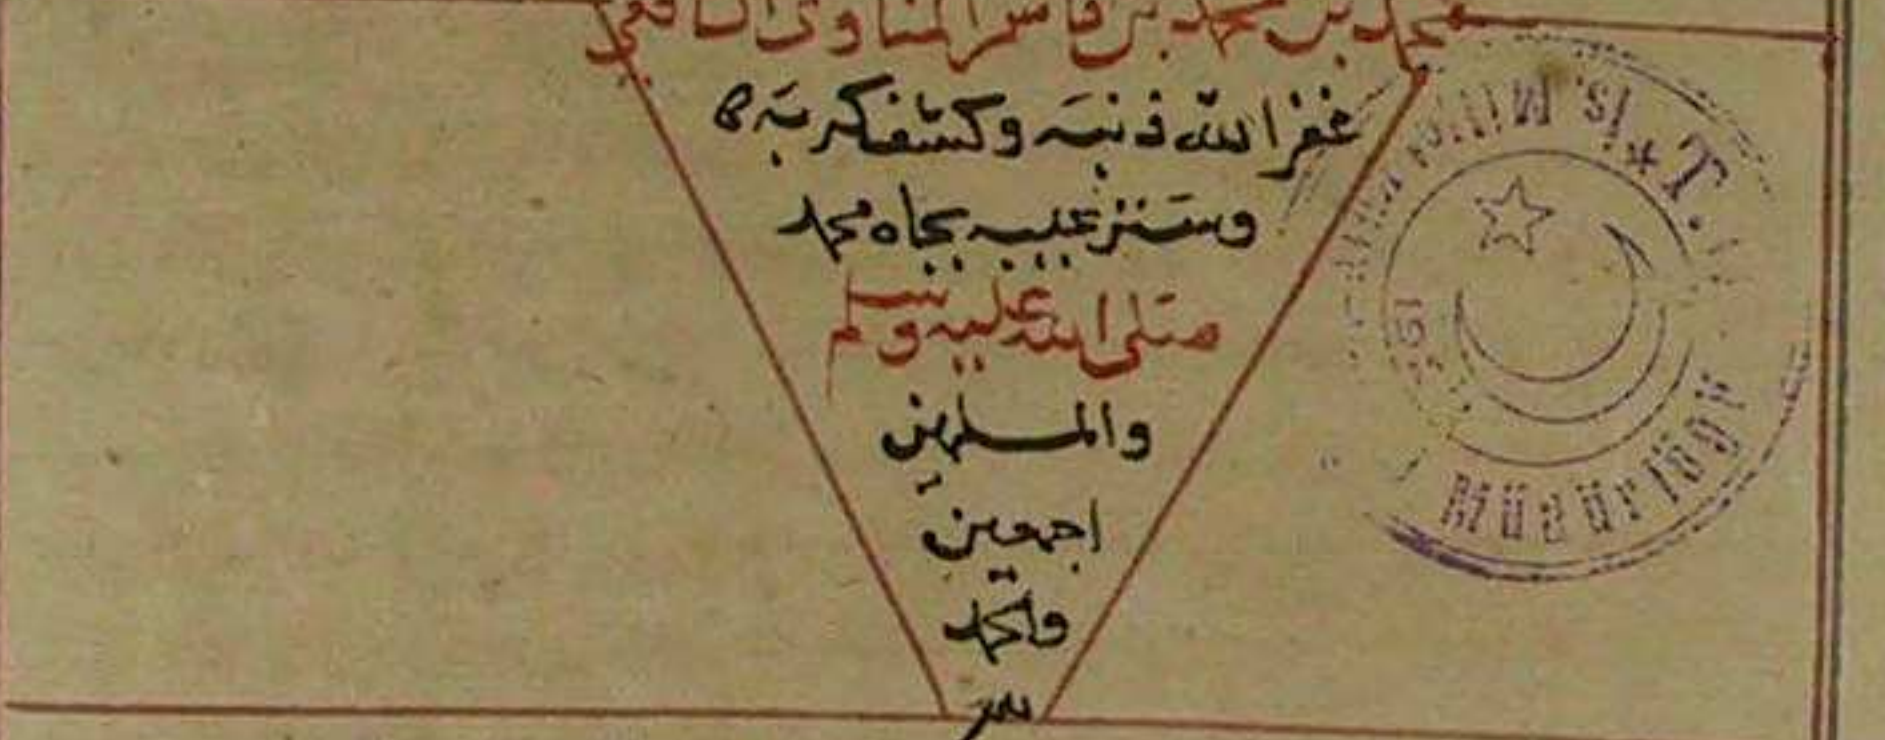 محمد بن محمد بن قاسم المناوي الشافعي
غفر الله ذنبه وكشف كربه
وستر عيبه بجاه محمد
صلى الله عليه وسلم
والمسلمين
اجمعين
والحمد
لله
T.
Müdürlüğü